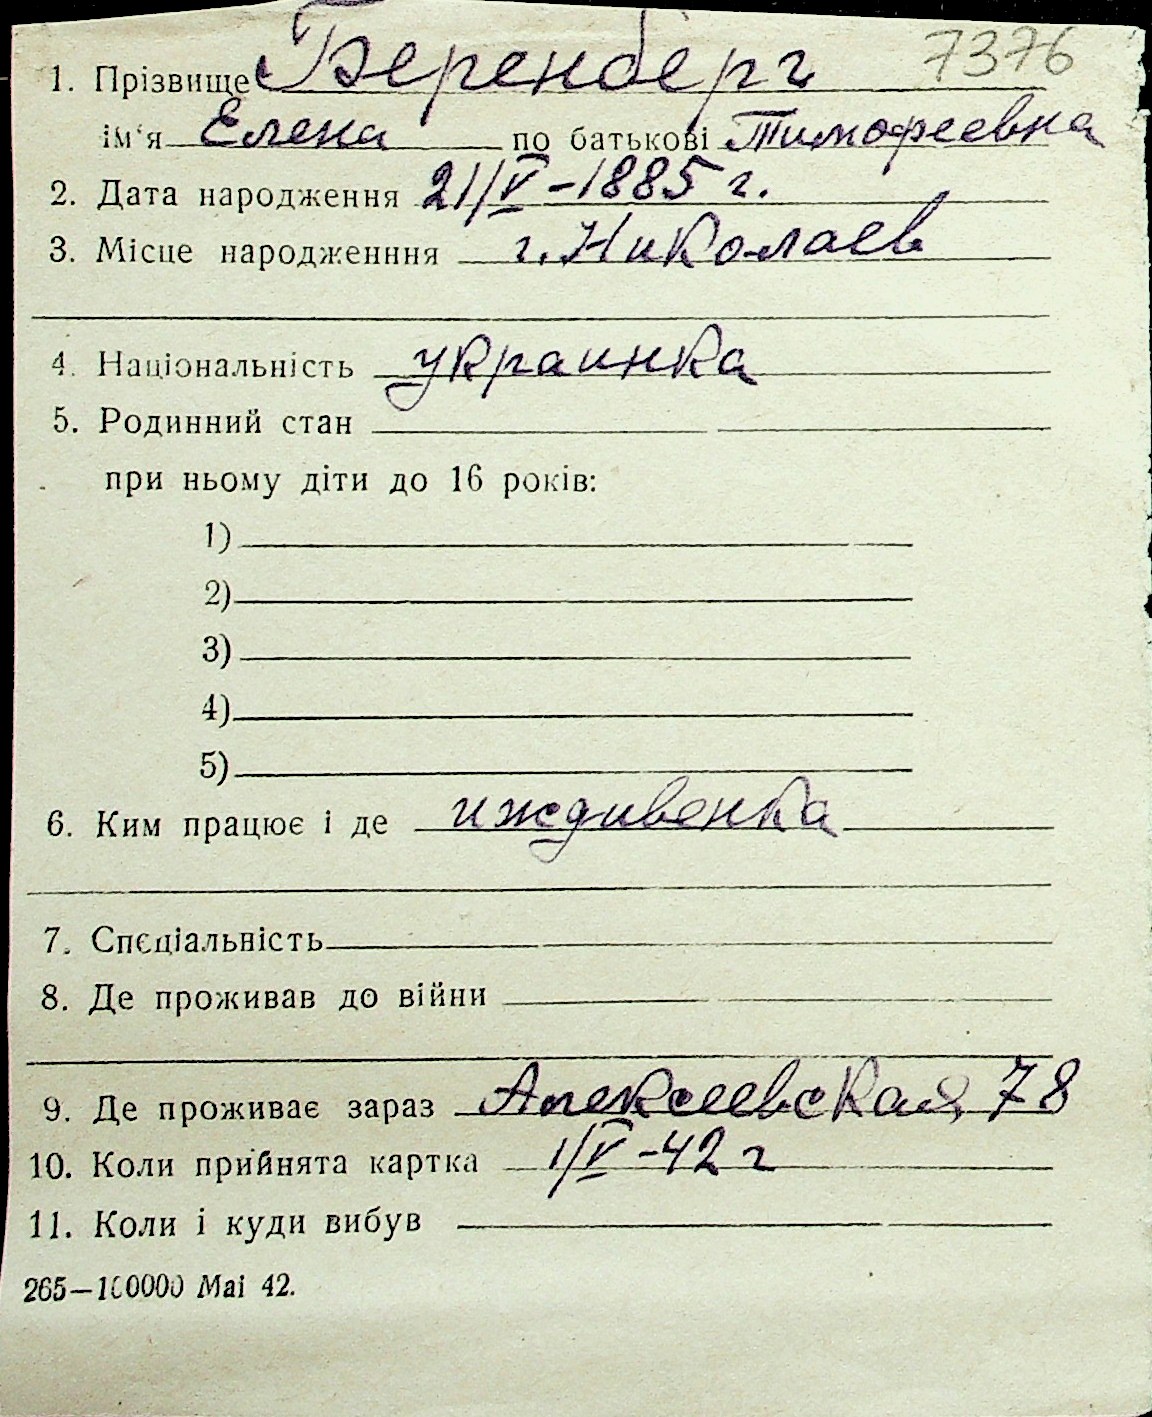 7376
1. Прізвище Беренберг
ім'я Елена по батькові Тимофеевна
2. Дата народження 21/V-1885 г.
3. Місце народженння г. Николаев
4. Національність украинка
5. Родинний стан
при ньому діти до 16 років:
1)
2)
3)
4)
5)
6. Ким працює і де иждивенка
7. Спєціальність
8. Де проживав до війни
9. Де проживає зараз Алексеевская, 78
10. Коли прийнята картка 1/V-42 г
11. Коли і куди вибув
265—100000 Mai 42.